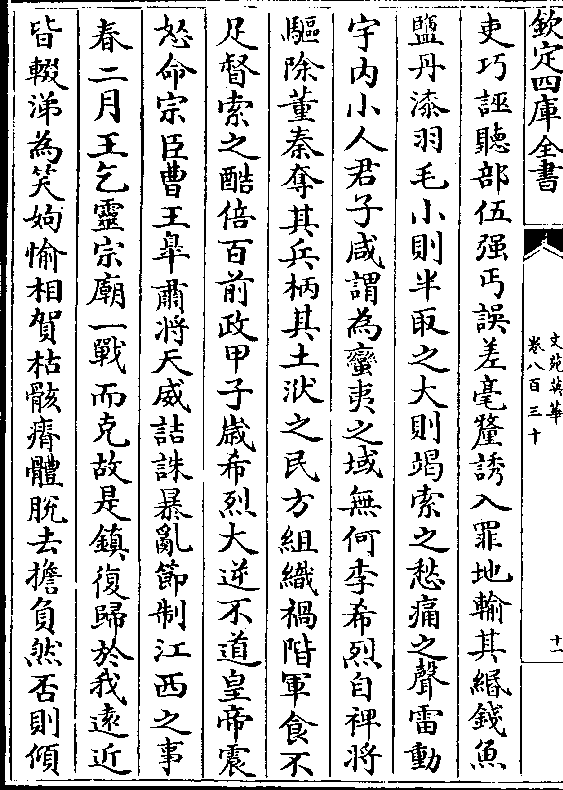 欽定四庫全書
文苑英華
卷八百三十
十一
吏巧誣聽部伍强丐誤差毫釐誘入罪地輸其緡錢魚
鹽丹漆羽毛小則半取之大則竭索之愁痛之聲雷動
宇内小人君子咸謂為蠻夷之域無何李希烈自裨將
驅除董秦奪其兵柄其土洑之民方組織禍階軍食不
足督索之酷倍百前政甲子嵗希烈大逆不道皇帝震
怒命宗臣曹王皐肅將天威詰誅暴亂節制江西之事
春二月王乞靈宗廟一戰而克故是鎮復歸於我逺近
皆輟涕為笑姁愉相賀枯骸瘠體脫去擔負然否則傾